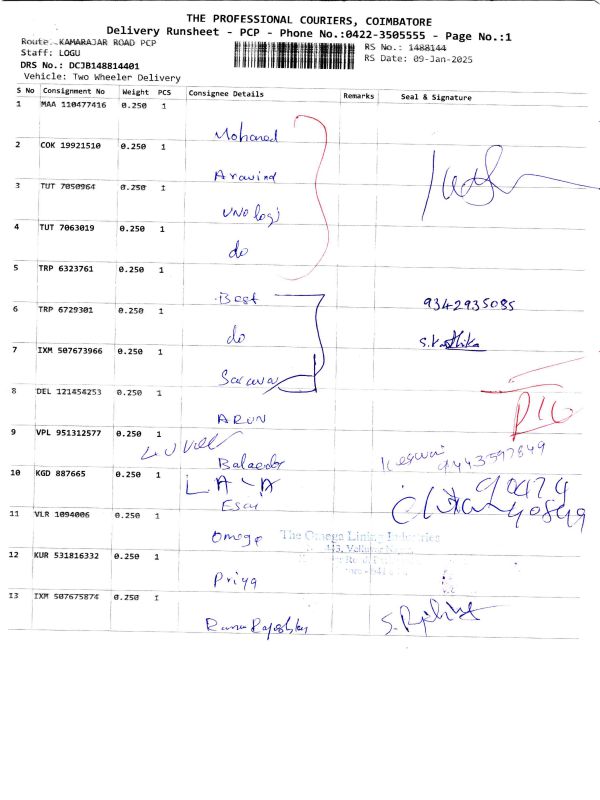 THE PROFESSIONAL COURIERS, COIMBATORE
Delivery Runsheet - PCP - Phone No.:0422-3505555 - Page No.:1
Route: KAMARAJAR ROAD PCP
RS No.: 1488144
Staff: LOGU
RS Date: 09-Jan-2025
DRS No.: DCJB148814401
Vehicle: Two Wheeler Delivery
S No Consignment No Weight PCS Consignee Details Remarks Seal & Signature
1 MAA 110477416 0.250 1
Mohanad
2 COK 19921510 0.250 1
Aravind
3 TUT 7050964 0.250 1
UNO logi
4 TUT 7063019 0.250 1
do
5 TRP 6323761 0.250 1
Best 9342935085
6 TRP 6729301 0.250 1
do
7 IXM 507673966 0.250 1
Sarava
8 DEL 121454253 0.250 1
ARUN
9 VPL 951312577 0.250 1
9443597849
10 KGD 887665 0.250 1
11 VLR 1094006 0.250 1
Omega The Omega Lining Industries
12 KUR 531816332 0.250 1
Priya
13 IXM 507675874 0.250 1